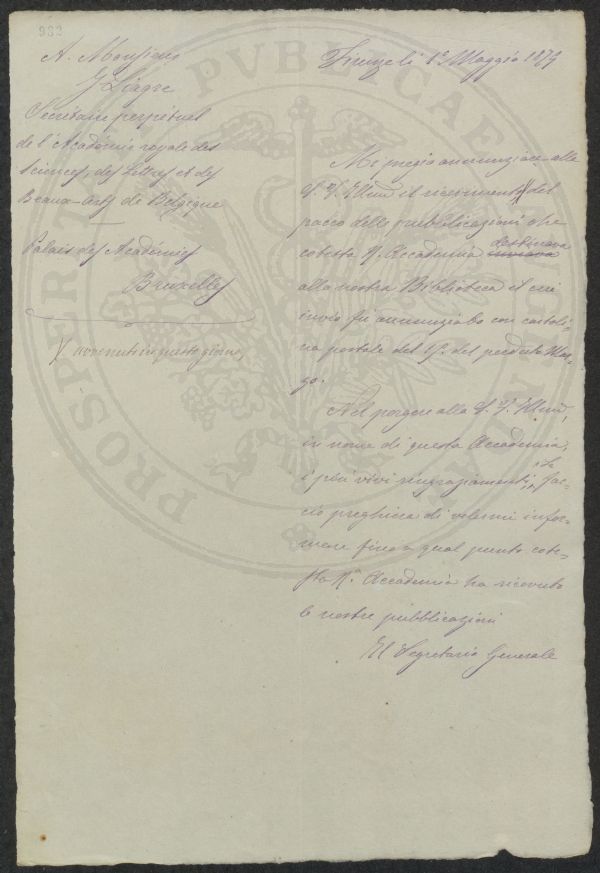 932
A. Monsieur
J Liagre
Secrétaire perpétuel
de l'Académie royale des
Sciences, des Lettres et des
Beaux-Arts de Belgique
Palais des Académies
Bruxelles
Firenze li 1º Maggio 1879
Mi pregio annunziare alla
S. V. Illma il ricevimento del
pacco delle pubblicazioni che
cotesta R. Accademia destinava
inviava
alla nostra Biblioteca il cui
invio fu annunziato con cartoli-
na postale del del perduto Mag-
gio.
Nel porgere alla S. V. Illma,
in nome di questa Accademia,
i più vivi ringraziamenti, Le fac-
cio preghiera di volermi infor-
mare fino a qual punto cote-
sta R. Accademia ha ricevuto
le nostre pubblicazioni
Il Segretario Generale
PROSPERITATI PUBLICAE